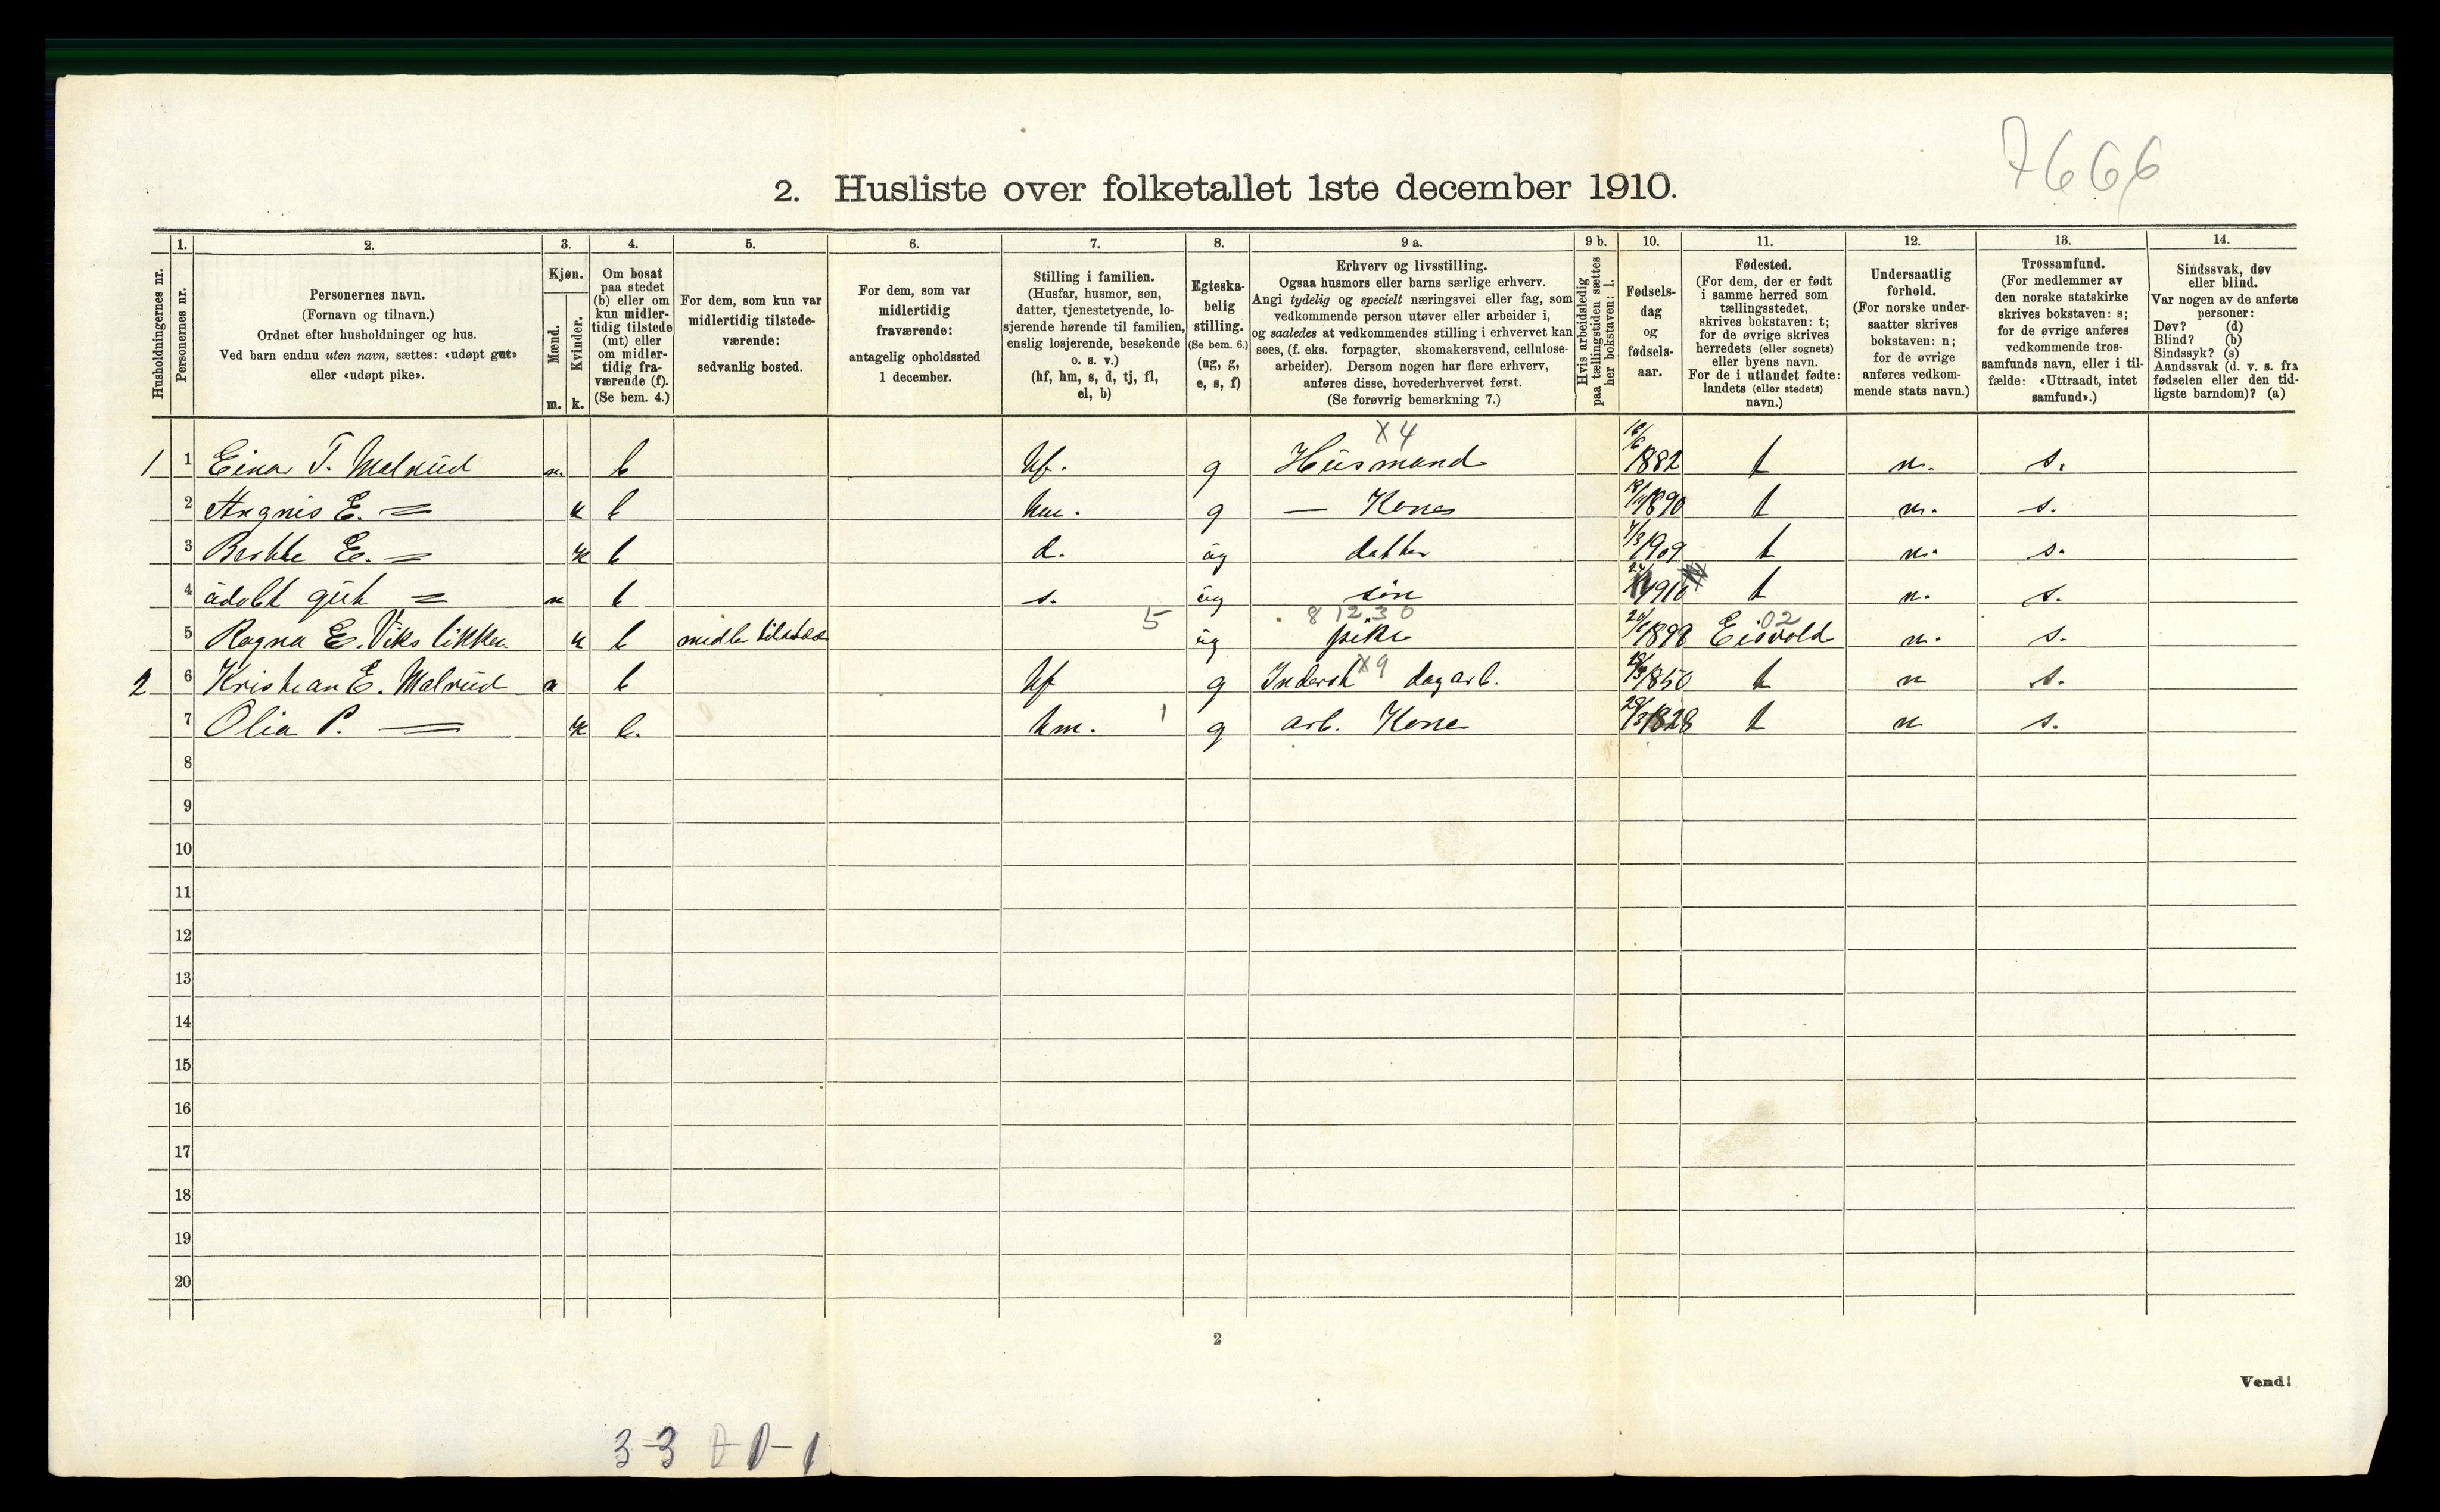 7666
2. Husliste over folketallet 1ste december 1910.
1. 2. 3. 4. 5. 6. 7. 8. 9 a. 9 b. 10. 11. 12. 13. 14.
Husholdningernes nr.
Personernes nr.
Personernes navn.
(Fornavn og tilnavn.)
Ordnet efter husholdninger og hus.
Ved barn endnu uten navn, sættes: «udøpt gut»
eller «udøpt pike».
Kjøn.
Mænd.
Kvinder.
m. k.
Om bosat
paa stedet
(b) eller om
kun midler-
tidig tilstede
(mt) eller
om midler-
tidig fra-
værende (f).
(Se bem. 4.)
For dem, som kun var
midlertidig tilstede-
værende:
sedvanlig bosted.
For dem, som var
midlertidig
fraværende:
antagelig opholdssted
1 december.
Stilling i familien.
(Husfar, husmor, søn,
datter, tjenestetyende, lo-
sjerende hørende til familien,
enslig losjerende, besøkende
o. s. v.)
(hf, hm, s, d, tj, fl,
el, b)
Egteska-
belig
stilling.
(Se bem. 6.)
(ug, g,
e, s, f)
Erhverv og livsstilling.
Ogsaa husmors eller barns særlige erhverv.
Angi tydelig og specielt næringsvei eller fag, som
vedkommende person utøver eller arbeider i,
og saaledes at vedkommendes stilling i erhvervet kan
sees, (f. eks. forpagter, skomakersvend, cellulose-
arbeider). Dersom nogen har flere erhverv,
anføres disse, hovederhvervet først.
(Se forøvrig bemerkning 7.)
Hvis arbeidsledig
paa tællingstiden sættes
her bokstaven: l.
Fødsels-
dag
og
fødsels-
aar.
Fødested.
(For dem, der er født
i samme herred som
tællingsstedet,
skrives bokstaven: t;
for de øvrige skrives
herredets (eller sognets)
eller byens navn.
For de i utlandet fødte:
landets (eller stedets)
navn.)
Undersaatlig
forhold.
(For norske under-
saatter skrives
bokstaven: n;
for de øvrige
anføres vedkom-
mende stats navn.)
Trossamfund.
(For medlemmer av
den norske statskirke
skrives bokstaven: s;
for de øvrige anføres
vedkommende tros-
samfunds navn, eller i til-
fælde: «Uttraadt, intet
samfund».)
Sindssvak, døv
eller blind.
Var nogen av de anførte
personer:
Døv? (d)
Blind? (b)
Sindssyk? (s)
Aandssvak (d. v. s. fra
fødselen eller den tid-
ligste barndom)? (a)
X 4
1 1 Einar T. Malrud m. b hf. g Husmand 1882 t n. s.
2 Angnis E. = k b hm. g — Kone 1890 t n. s.
3 Berthe E. = k b d. ug datter 1909 t n. s.
4 udøbt gut = m b s. ug søn 1910 t n. s.
5 8 12 30 02
5 Ragna E. k b ug pike 1898 Eisvold n. s.
X9
2 6 Kristian E. Malrud m b hf g dagarb. 1850 t n s.
7 Olia P. — k b. hm. 1 g arb. Kone 1828 t n s.
8
9
10
11
12
13
14
15
16
17
18
19
20
2
Vend!
3-3